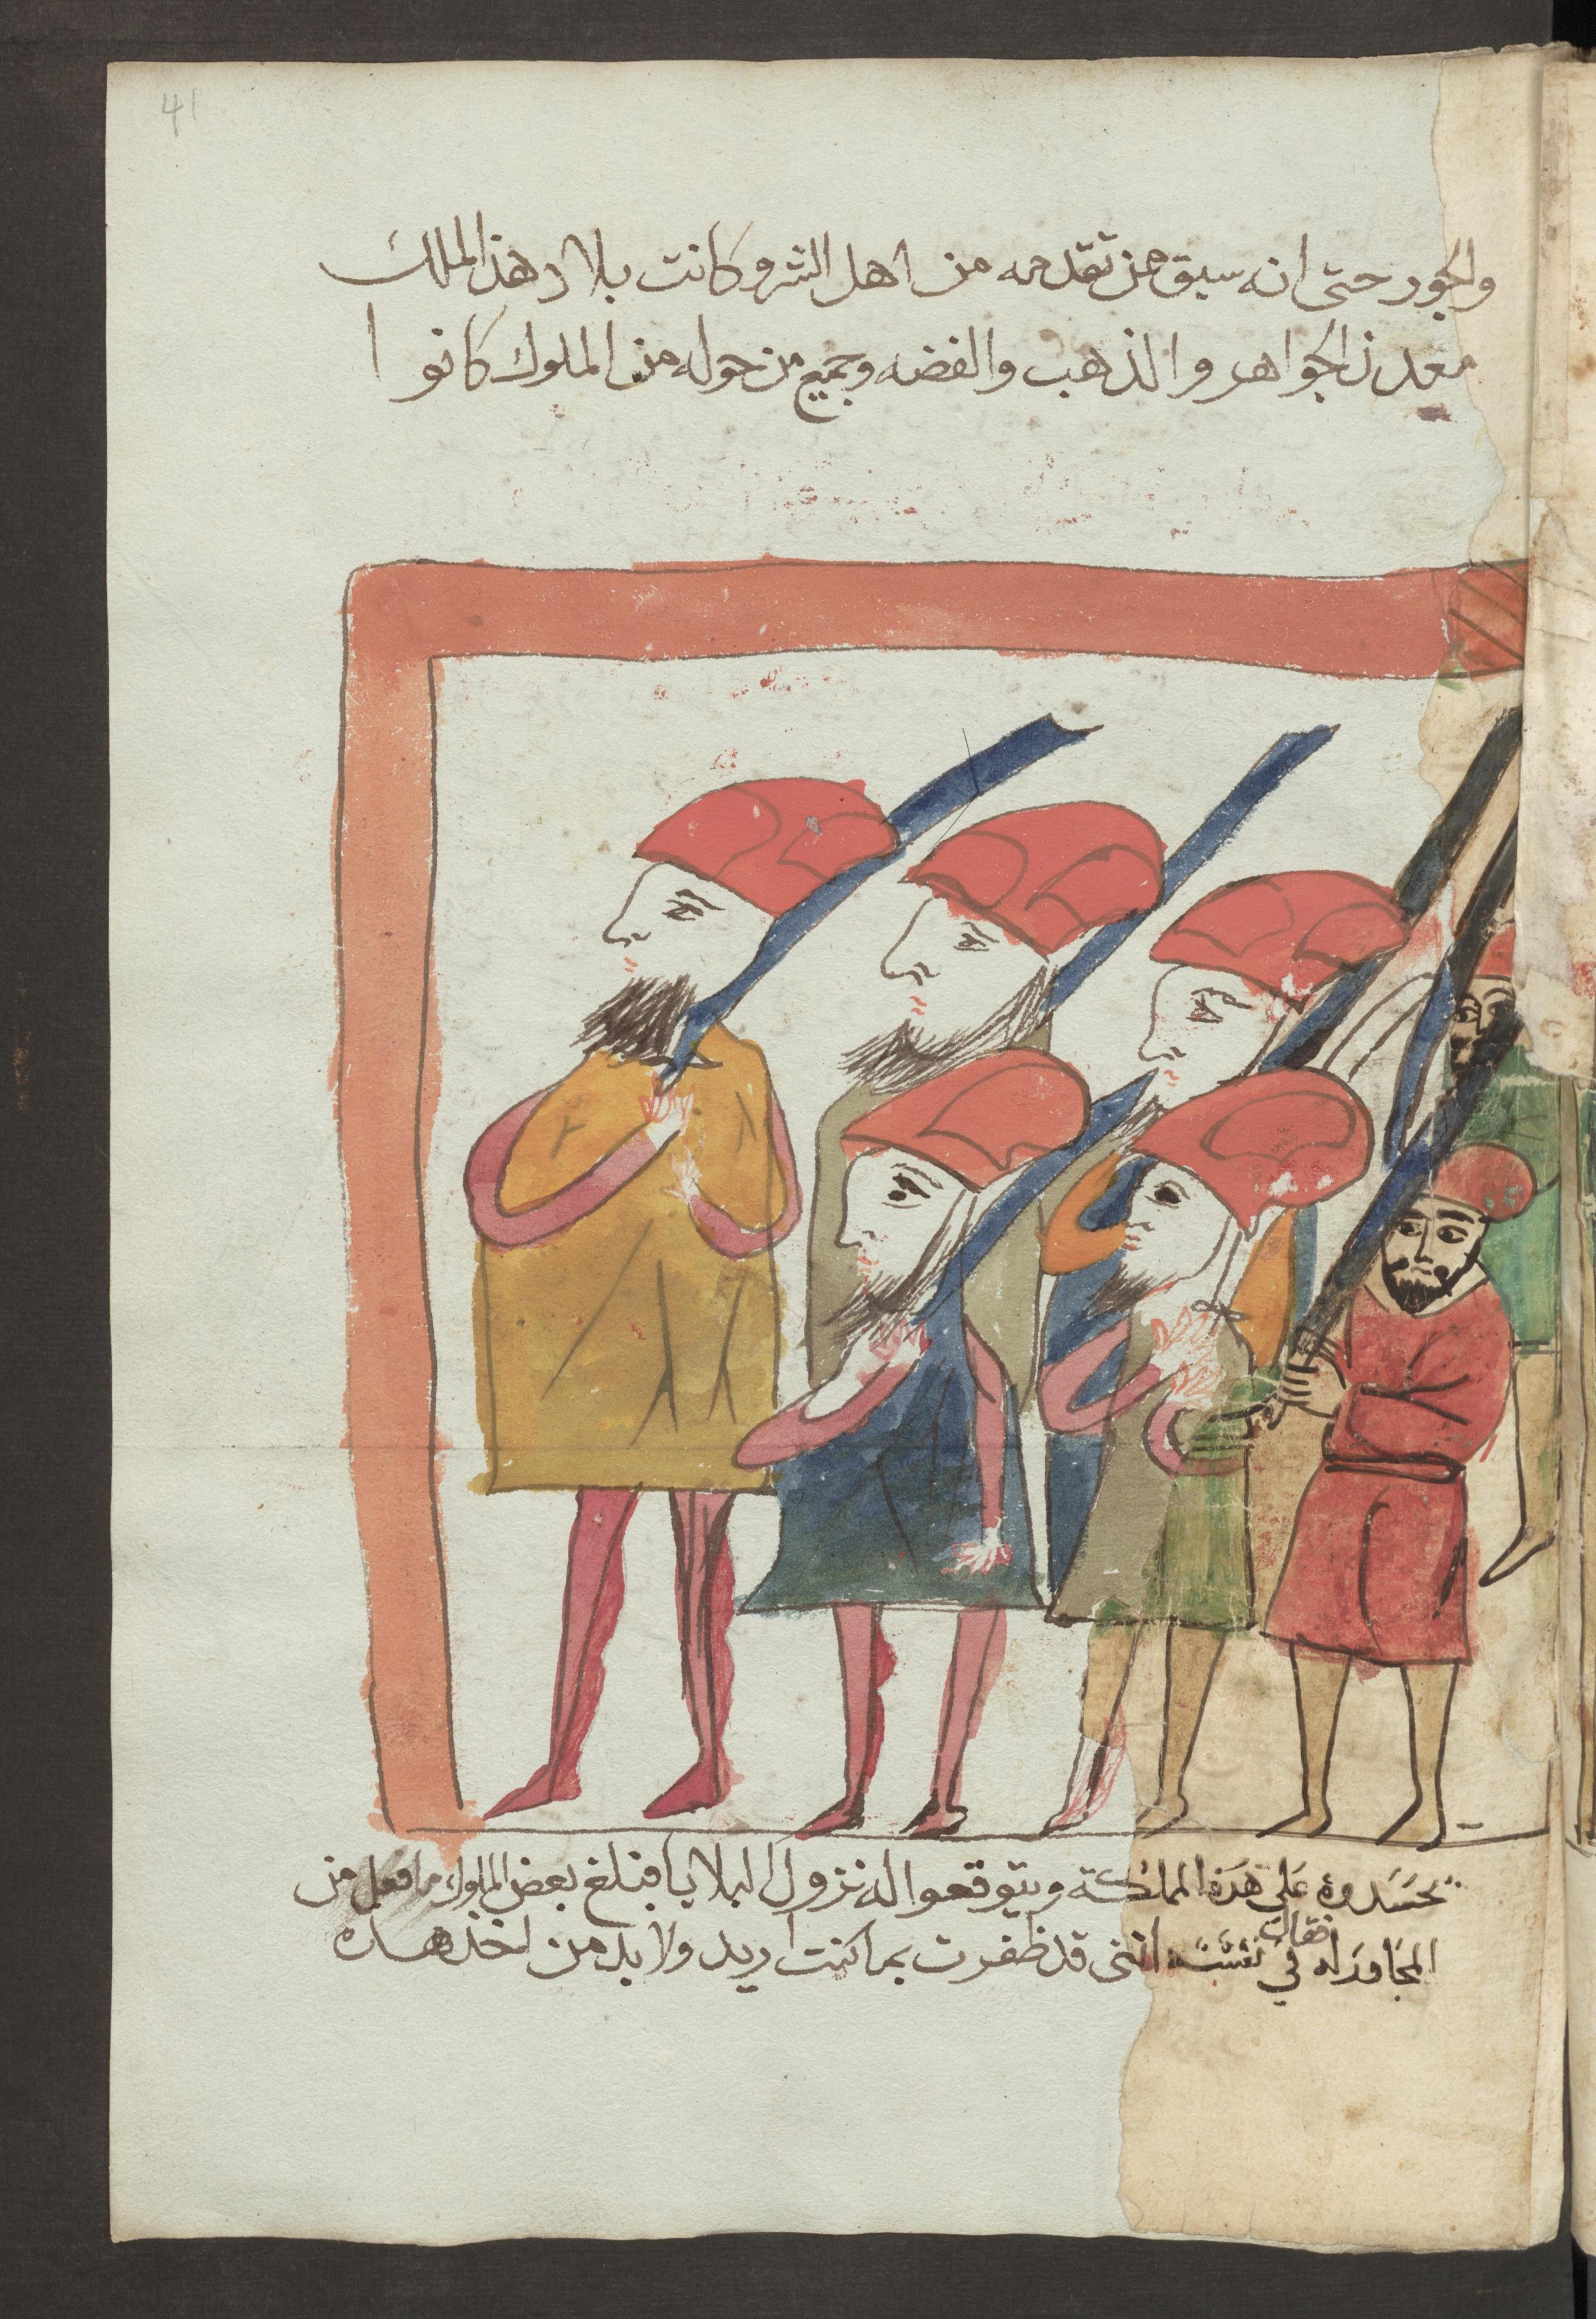 41
والجور حتى انه سبق من تقدمه من اهل الشر وكانت بلاد هذا الملك
معدن الجواهر والذهب والفضه وجميع من حوله من الملوك كانوا
يحسدوه على هذه المملكة ويتوقعوا له نزول البلايا فبلغ بعض الملوك ما فعل من
فقال
المجاور له في نفسه اننى قد ظفرت بما كنت اريد ولا بد من اخذ هذه